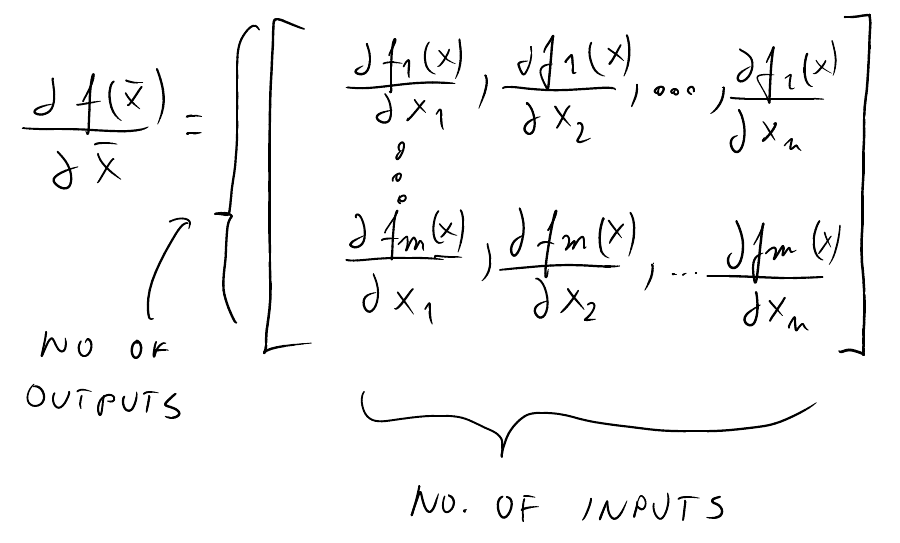 ∂f(x̄)/∂x̄ = [ ∂f₁(x)/∂x₁ , ∂f₁(x)/∂x₂ , ... , ∂f₁(x)/∂xₙ
⋮
∂fₘ(x)/∂x₁ , ∂fₘ(x)/∂x₂ , ... ∂fₘ(x)/∂xₙ ]
NO OF
OUTPUTS
NO. OF INPUTS